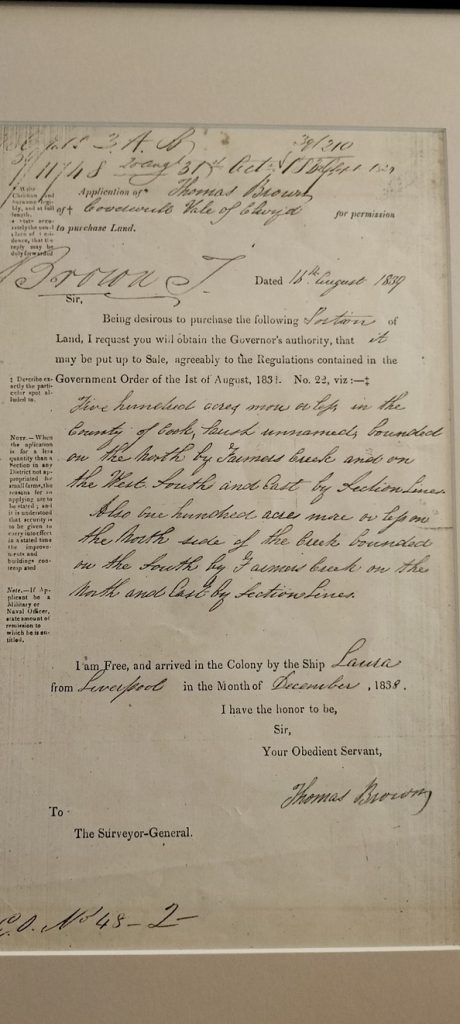 39/210
11/48 20 Aug 31st Oct
Application of* Thomas Brown
of† Cooerwull Vale of Clwyd for permission
to purchase Land.
* Write
Christian and
surname legi-
bly, and at full
length.
† State accu-
rately the usual
place of resi-
dence, that the
reply may be
duly forwarded
Brown T.
Dated 16th August 1839
Sir,
Being desirous to purchase the following Portion of
Land, I request you will obtain the Governor's authority, that it
may be put up to Sale, agreeably to the Regulations contained in the
Government Order of the 1st of August, 1831. No. 22, viz:—‡
‡ Describe ex-
actly the parti-
cular spot al-
luded to.
Five hundred acres more or less in the
County of Cook, Parish unnamed, bounded
on the North by Farmers Creek and on
the West South and East by Section Lines.
Also one hundred acres more or less on
the North side of the Creek bounded
on the South by Farmers Creek on the
North and East by Section Lines.
NOTE.—When
the aplication
is for a less
quantity than a
Section in any
District not ap-
propriated for
small farms, the
reasons for so
applying are to
be stated; and
it is understood
that security is
to be given to
carry into effect
in a stated time
the improve-
ments and
buildings con-
templated
Note.—If Ap-
plicant be a
Military or
Naval Officer,
state amount of
remission to
which he is en-
titled.
I am Free, and arrived in the Colony by the Ship Laura
from Liverpool in the Month of December, 1838.
I have the honor to be,
Sir,
Your Obedient Servant,
Thomas Brown
To
The Surveyor-General.
No 48-2-